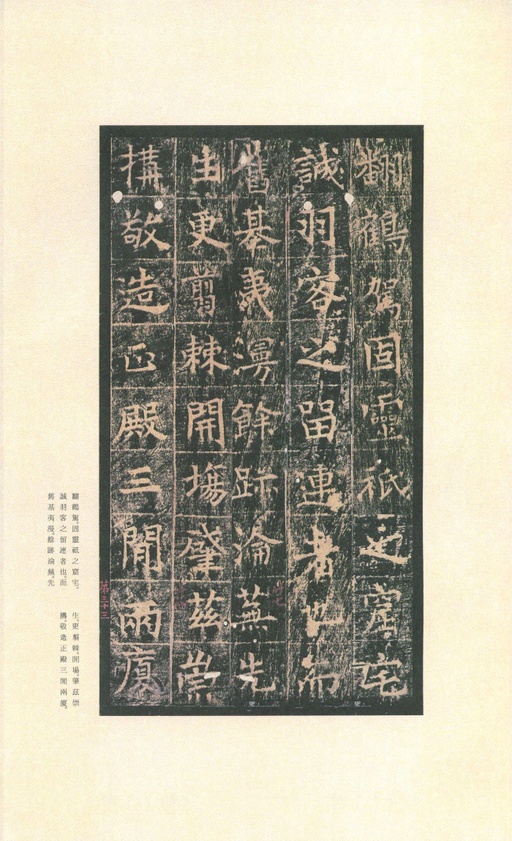 翻鶴駕固靈祇之窟宅
誠羽客之留連者也而
舊基夷漫餘跡淪蕪先
生更翦棘開場肇茲崇
構敬造正殿三間兩廈
翻鶴駕、固靈祇之窟宅。
誠羽客之留連者也。而
舊基夷漫、餘跡淪蕪。先
生、更翦棘、開場、肇茲崇
構、敬造正殿三間兩廈。
第三十三